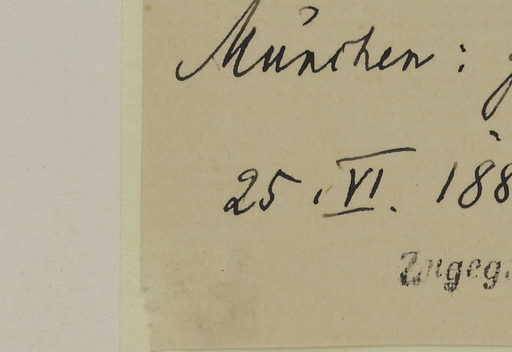 München :
25. VI. 188
Zugeg.